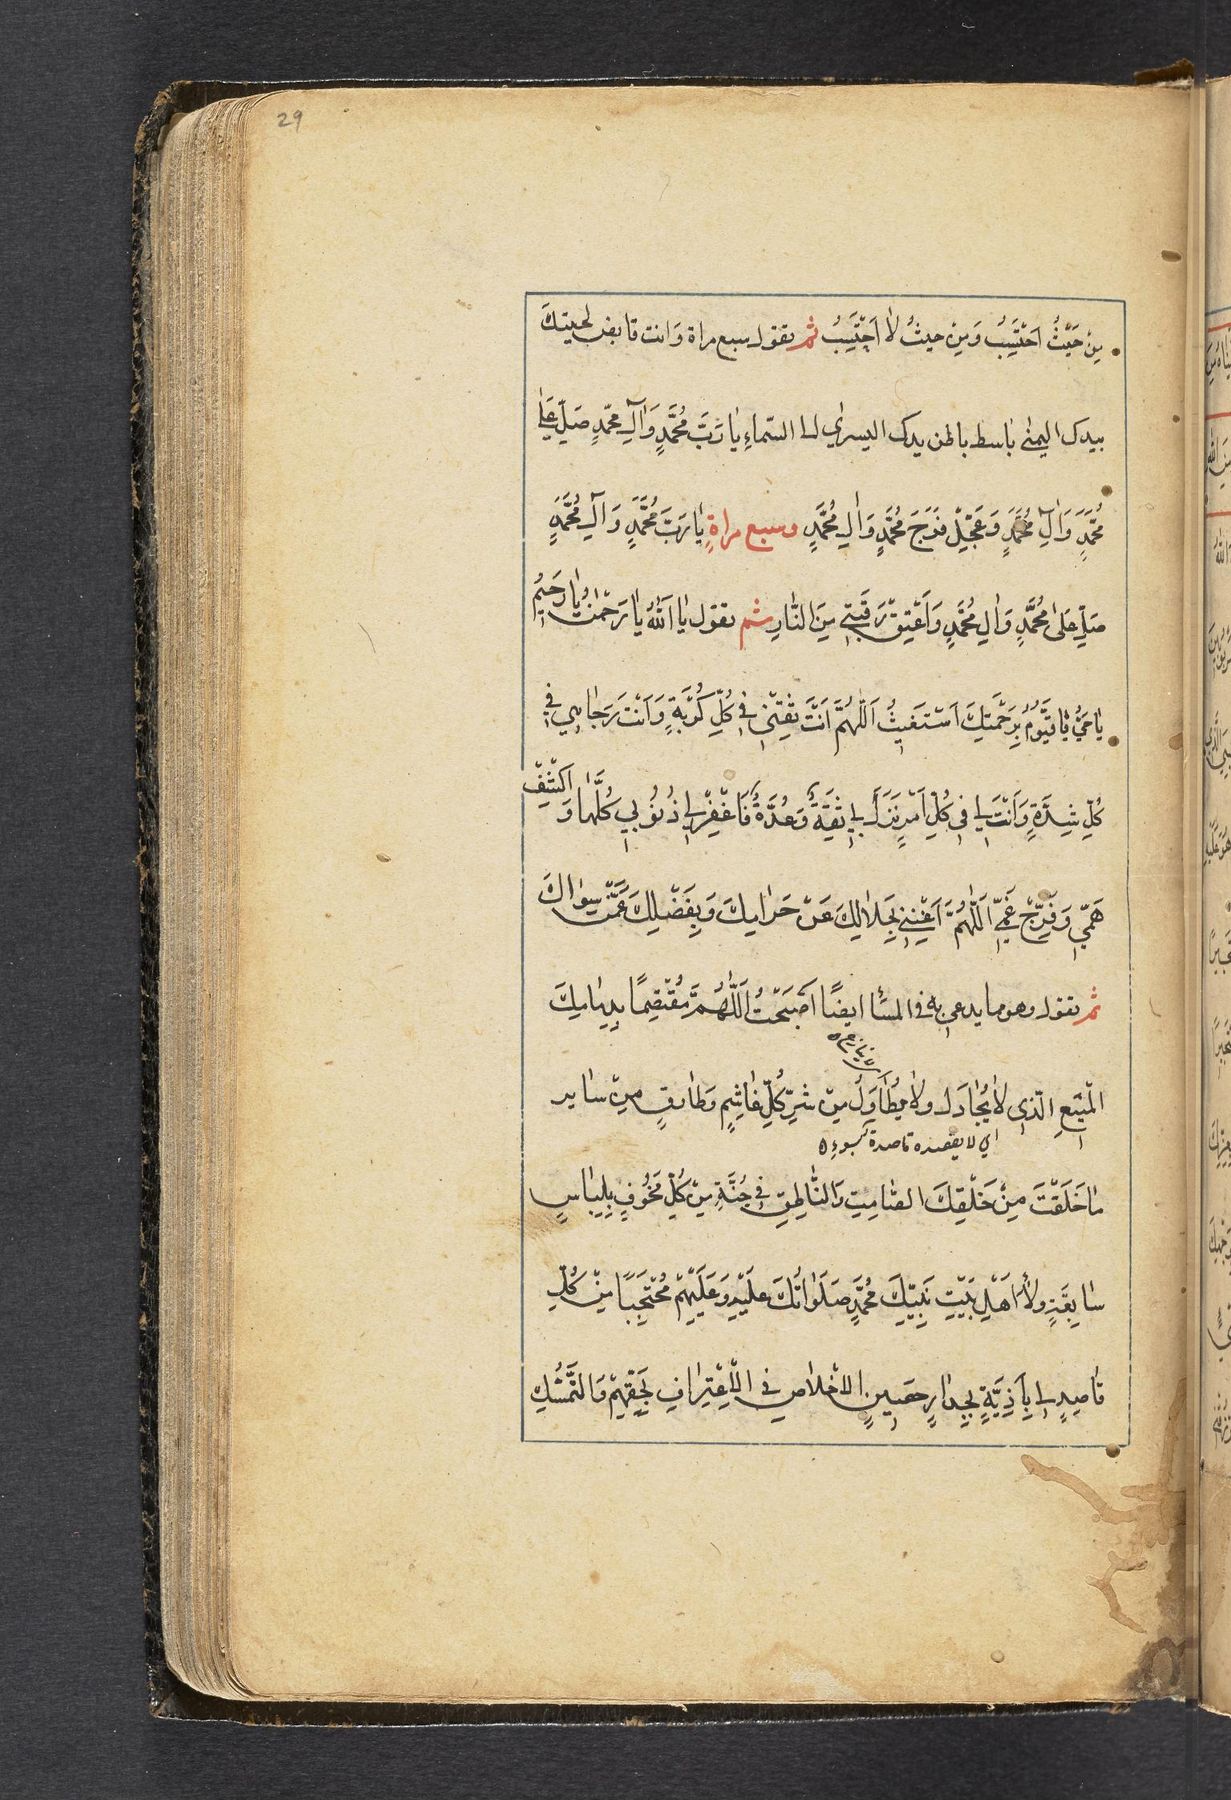 29
مِنْ حَيْثُ اَحْتَسِبُ وَمِنْ حيثُ لاٰ اَحْتَسِبُ ثم تقول سبع مراة وَانت قابض لحيتكَ
بيدك اليمنٰى بٰاسط باطن يدك اليسرٰى الى السّماءِ يٰا رَبَّ مُحَمَّدٍ وَاٰلِ محمّدٍ صَلِّ عَلٰى
مُحَمَّدٍ وَاٰلِ مُحَمَّدٍ وَعَجِّلْ فَرَجَ مُحَمَّدٍ وَاٰلِ مُحَمَّدٍ وسبع مراةٍ يٰا رَبَّ مُحَمَّدٍ وَاٰلِ مُحَمَّدٍ
صَلِّ عَلىٰ مُحَمَّدٍ وَاٰلِ مُحَمَّدٍ وَاَعْتِقْ رَقَبَتٖي مِنَ النّٰارِ ثم تقول يٰا اَللّٰهُ يٰا رَحْمٰنُ يٰا رَحٖيمُ
يٰا حَيُّ يٰا قَيُّومُ بِرَحْمَتِكَ اَسْتَغٖيثُ اَللّٰهُمَّ اَنْتَ ثِقَتٖي فٖي كُلِّ كُرْبَةٍ وَاَنْتَ رَجٰائٖي فٖي
كُلِّ شِدَّةٍ وَاَنْتَ لٖي فٖي كُلِّ اَمْرٍ نَزَلَ بٖي ثِقَةٌ وَعُدَّةٌ فَاغْفِرْ لٖي ذُنُوبٖي كُلَّهٰا وَاكْشِفْ
هَمّٖي وَفَرِّجْ غَمّٖي اَللّٰهُمَّ اَغْنِنٖي بِحَلاٰلِكَ عَنْ حَرٰامِكَ وَبِفَضْلِكَ عَمَّنْ سِوٰاكَ
ثم تقول وهو مما يدعى به فى المسٰاء ايضًا اَصْبَحْتُ اَللّٰهُمَّ مُعْتَصِمًا بِذِمٰامِكَ
الْمَنٖيعِ الّذٖي لاٰ يُحٰاوَلُ ولاٰ يُطٰاوَلُ مِنْ شَرِّ كُلِّ غٰاشِمٍ وَطٰارِقٍ مِنْ سٰايرِ
اي لا يقصده قاصدة بسوء
مٰا خَلَقْتَ مِنْ خَلْقِكَ الصّٰامِتِ وَالنّٰاطِقِ فٖي جُنَّةٍ مِنْ كُلِّ مَخُوفٍ بِلِبٰاسٍ
سٰابِغَةٍ ولاٰءِ اَهْلِ بَيْتِ نَبِيِّكَ مُحَمَّدٍ صَلَوٰاتُكَ عَلَيْهِ وَعَلَيْهِمْ مُحْتَجِبًا مِنْ كُلِّ
قٰاصِدٍ لٖي بِاَذِيَّةٍ بِجِدٰارٍ حَصٖينٍ الاخْلاٰصِ فٖي الْاِعْتِرٰافِ بِحَقِّهِمْ وَالتَّمَسُّكِ